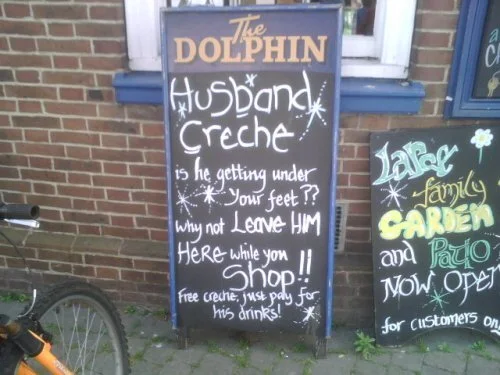 The
DOLPHIN
Husband
Creche
is he getting under
your feet??
why not Leave HIM
HeRe while you
Shop!!
Free creche, just pay for
his drinks!
Large
family
GARDEN
and Patio
NOW Open
for customers